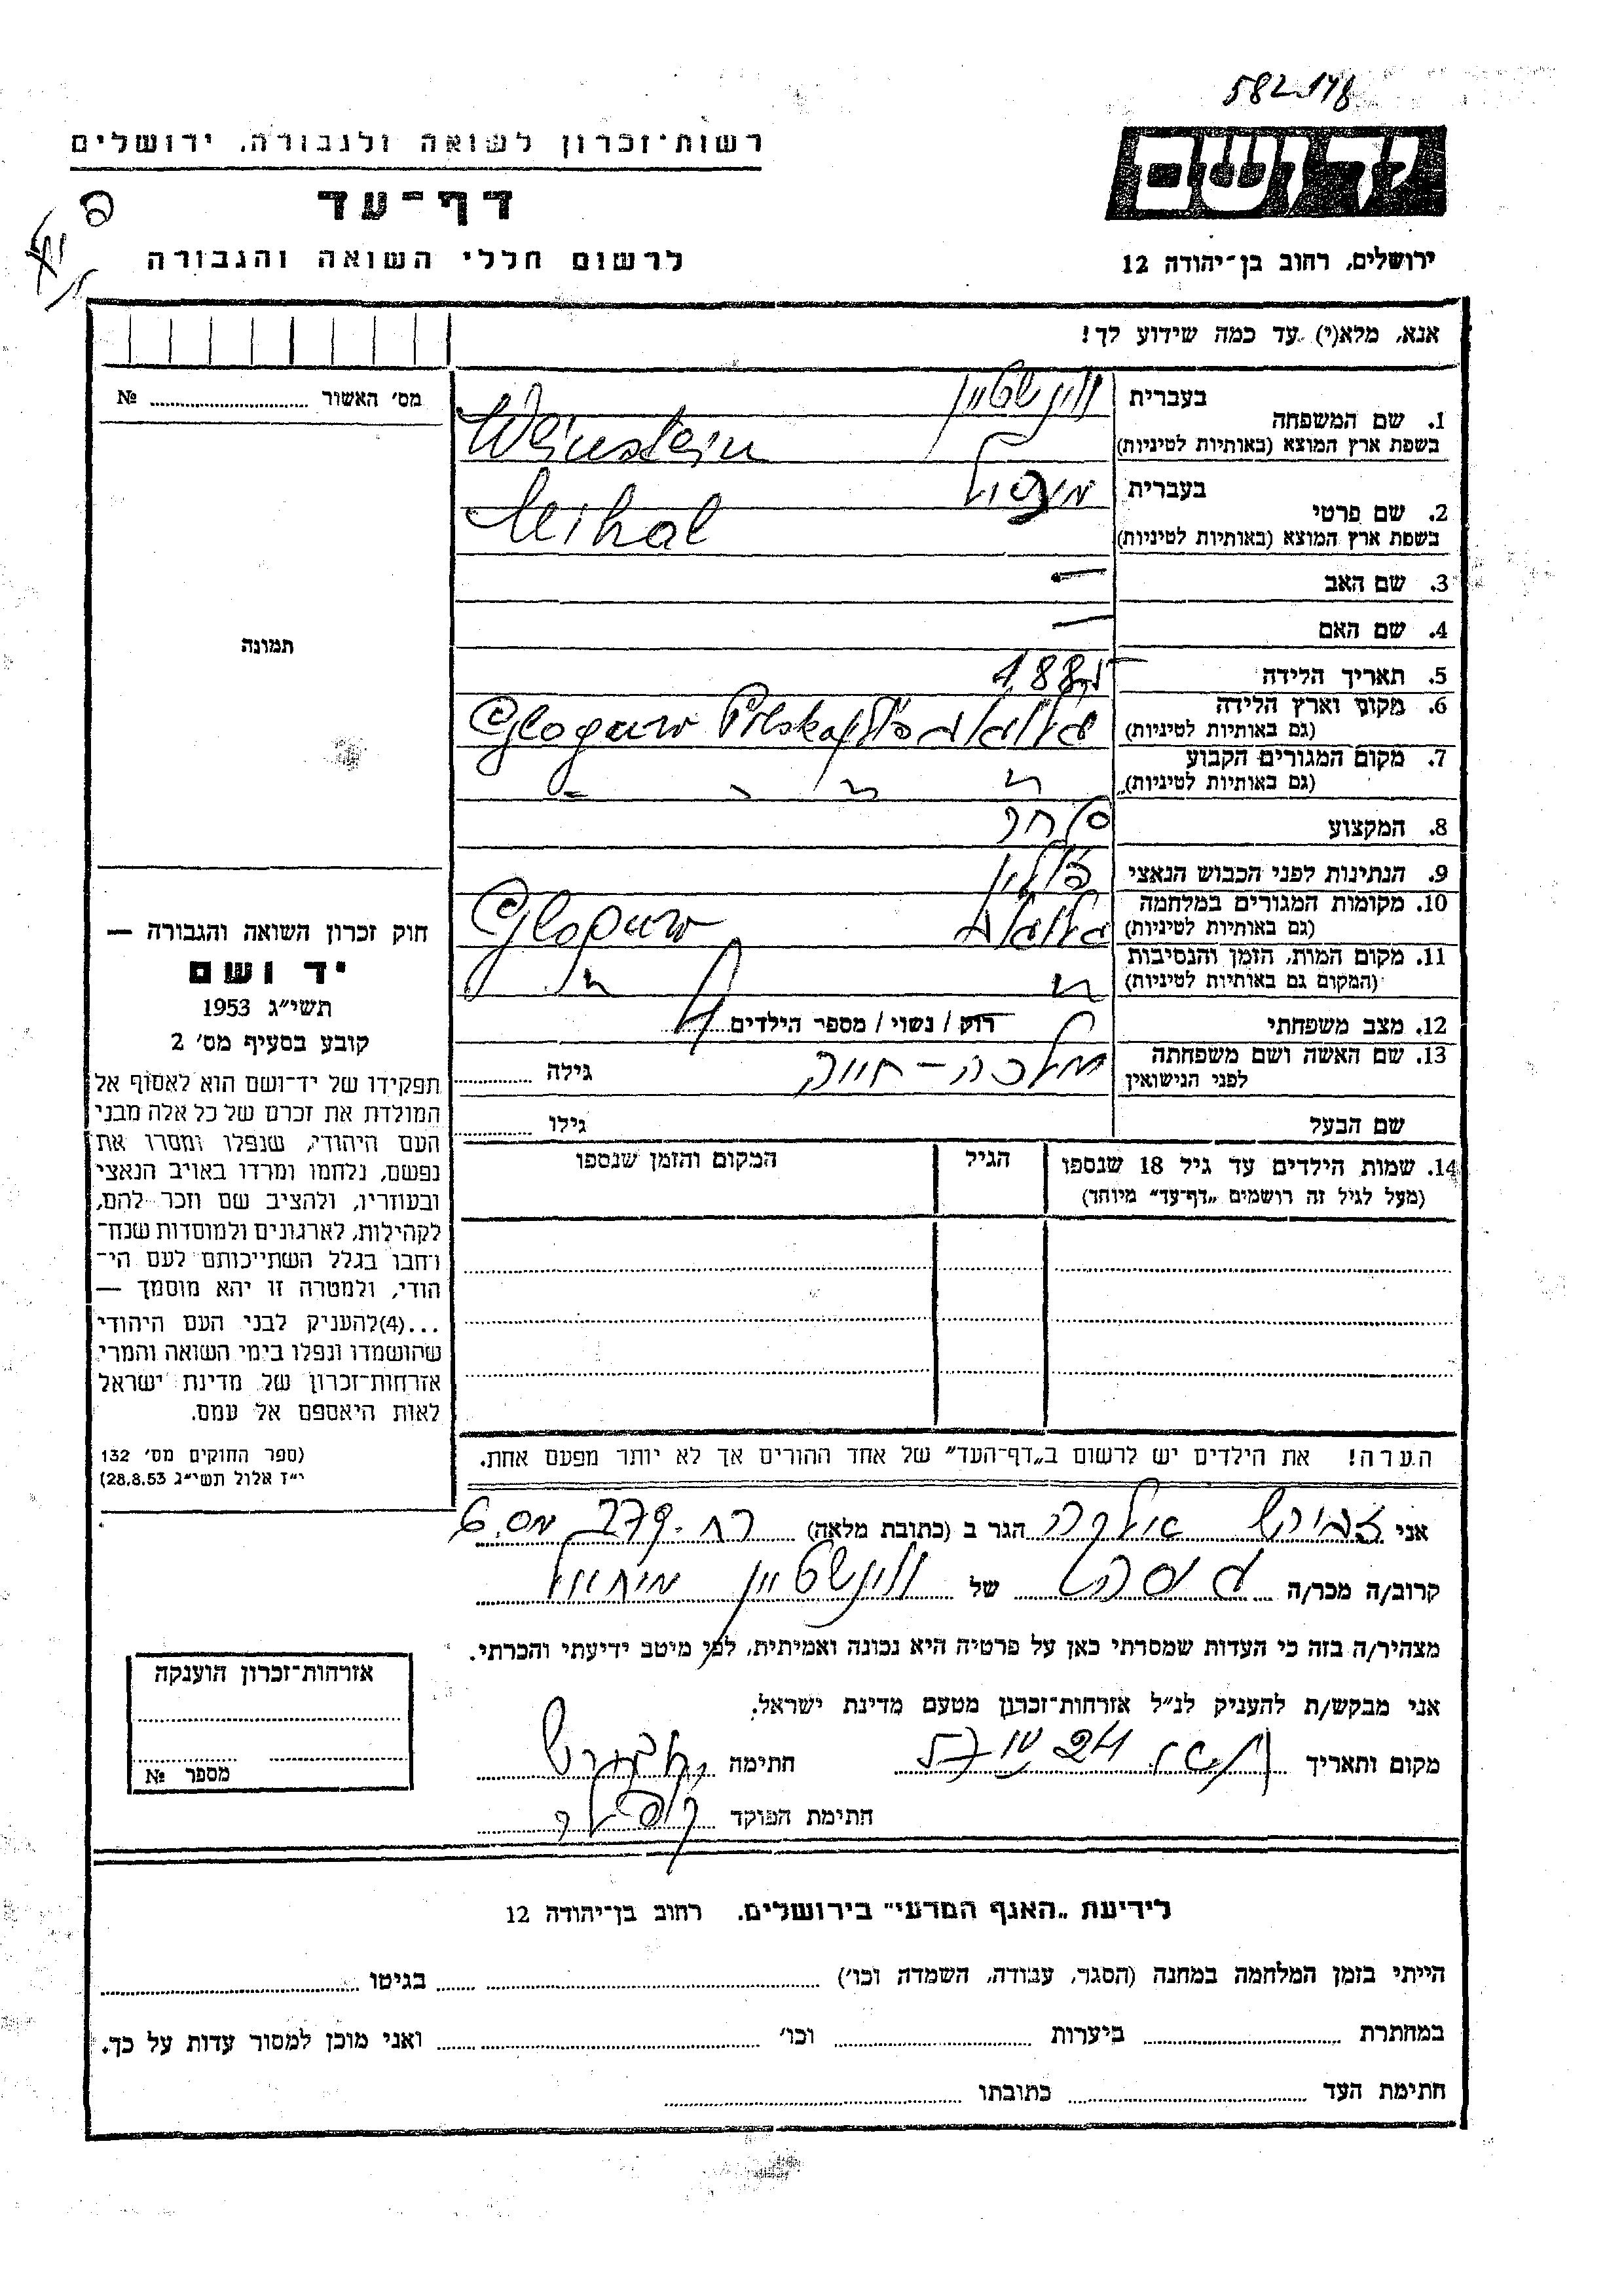 582 148
רשות־זכרון לשואה ולגבורה, ירושלים
דף־עד
לרשום חללי השואה והגבורה
ירושלים, רחוב בן־יהודה 12
אנא, מלא(י) עד כמה שידוע לך!
מס׳ האשור №
תמונה
1. שם המשפחה בעברית ויינשטיין
בשפת ארץ המוצא (באותיות לטיניות) Weinstein
2. שם פרטי בעברית
בשפת ארץ המוצא (באותיות לטיניות) Mihal
3. שם האב —
4. שם האם —
5. תאריך הלידה
6. מקום וארץ הלידה
(גם באותיות לטיניות) Glogauw Polska
7. מקום המגורים הקבוע
(גם באותיות לטיניות)
8. המקצוע סוחר
9. הנתינות לפני הכבוש הנאצי פולין
10. מקומות המגורים במלחמה
(גם באותיות לטיניות) Glogauw
11. מקום המות, הזמן והנסיבות
(המקום גם באותיות לטיניות)
12. מצב משפחתי רוק / נשוי / מספר הילדים 4
13. שם האשה ושם משפחתה
לפני הנישואין מלכה - גילה
שם הבעל גילו
14. שמות הילדים עד גיל 18 שנספו הגיל המקום והזמן שנספו
(מעל לגיל זה רושמים „דף־עד״ מיוחד)
הערה! את הילדים יש לרשום ב„דף־העד״ של אחד ההורים אך לא יותר מפעם אחת.
חוק זכרון השואה והגבורה —
יד ושם
תשי״ג 1953
קובע בסעיף מס׳ 2
תפקידו של יד־ושם הוא לאסוף אל
המולדת את זכרם של כל אלה מבני
העם היהודי, שנפלו ומסרו את
נפשם, נלחמו ומרדו באויב הנאצי
ובעוזריו, ולהציב שם וזכר להם,
לקהילות, לארגונים ולמוסדות שנח־
רחבו בגלל השתייכותם לעם הי־
הודי, ולמטרה זו יהא מוסמך —
...(4)להעניק לבני העם היהודי
שהושמדו ונפלו בימי השואה והמרי
אזרחות־זכרון של מדינת ישראל
לאות היאספם אל עמם.
(ספר החוקים מס׳ 132
י״ז אלול תשי״ג 28.8.53)
אני הגר ב (כתובת מלאה) רח. 279 מס. 6
קרוב/ה מכר/ה של ויינשטיין מיחאל
מצהיר/ה בזה כי העדות שמסרתי כאן על פרטיה היא נכונה ואמיתית, לפי מיטב ידיעתי והכרתי.
אני מבקש/ת להעניק לנ״ל אזרחות־זכרון מטעם מדינת ישראל.
מקום ותאריך חתימה
חתימת הפוקד
אזרחות־זכרון הוענקה
מספר №
לידיעת „האגף המדעי״ בירושלים. רחוב בן־יהודה 12
הייתי בזמן המלחמה במחנה (הסגר, עבודה, השמדה וכו׳) בגיטו
במחתרת ביערות וכו׳ ואני מוכן למסור עדות על כך.
חתימת העד כתובתו